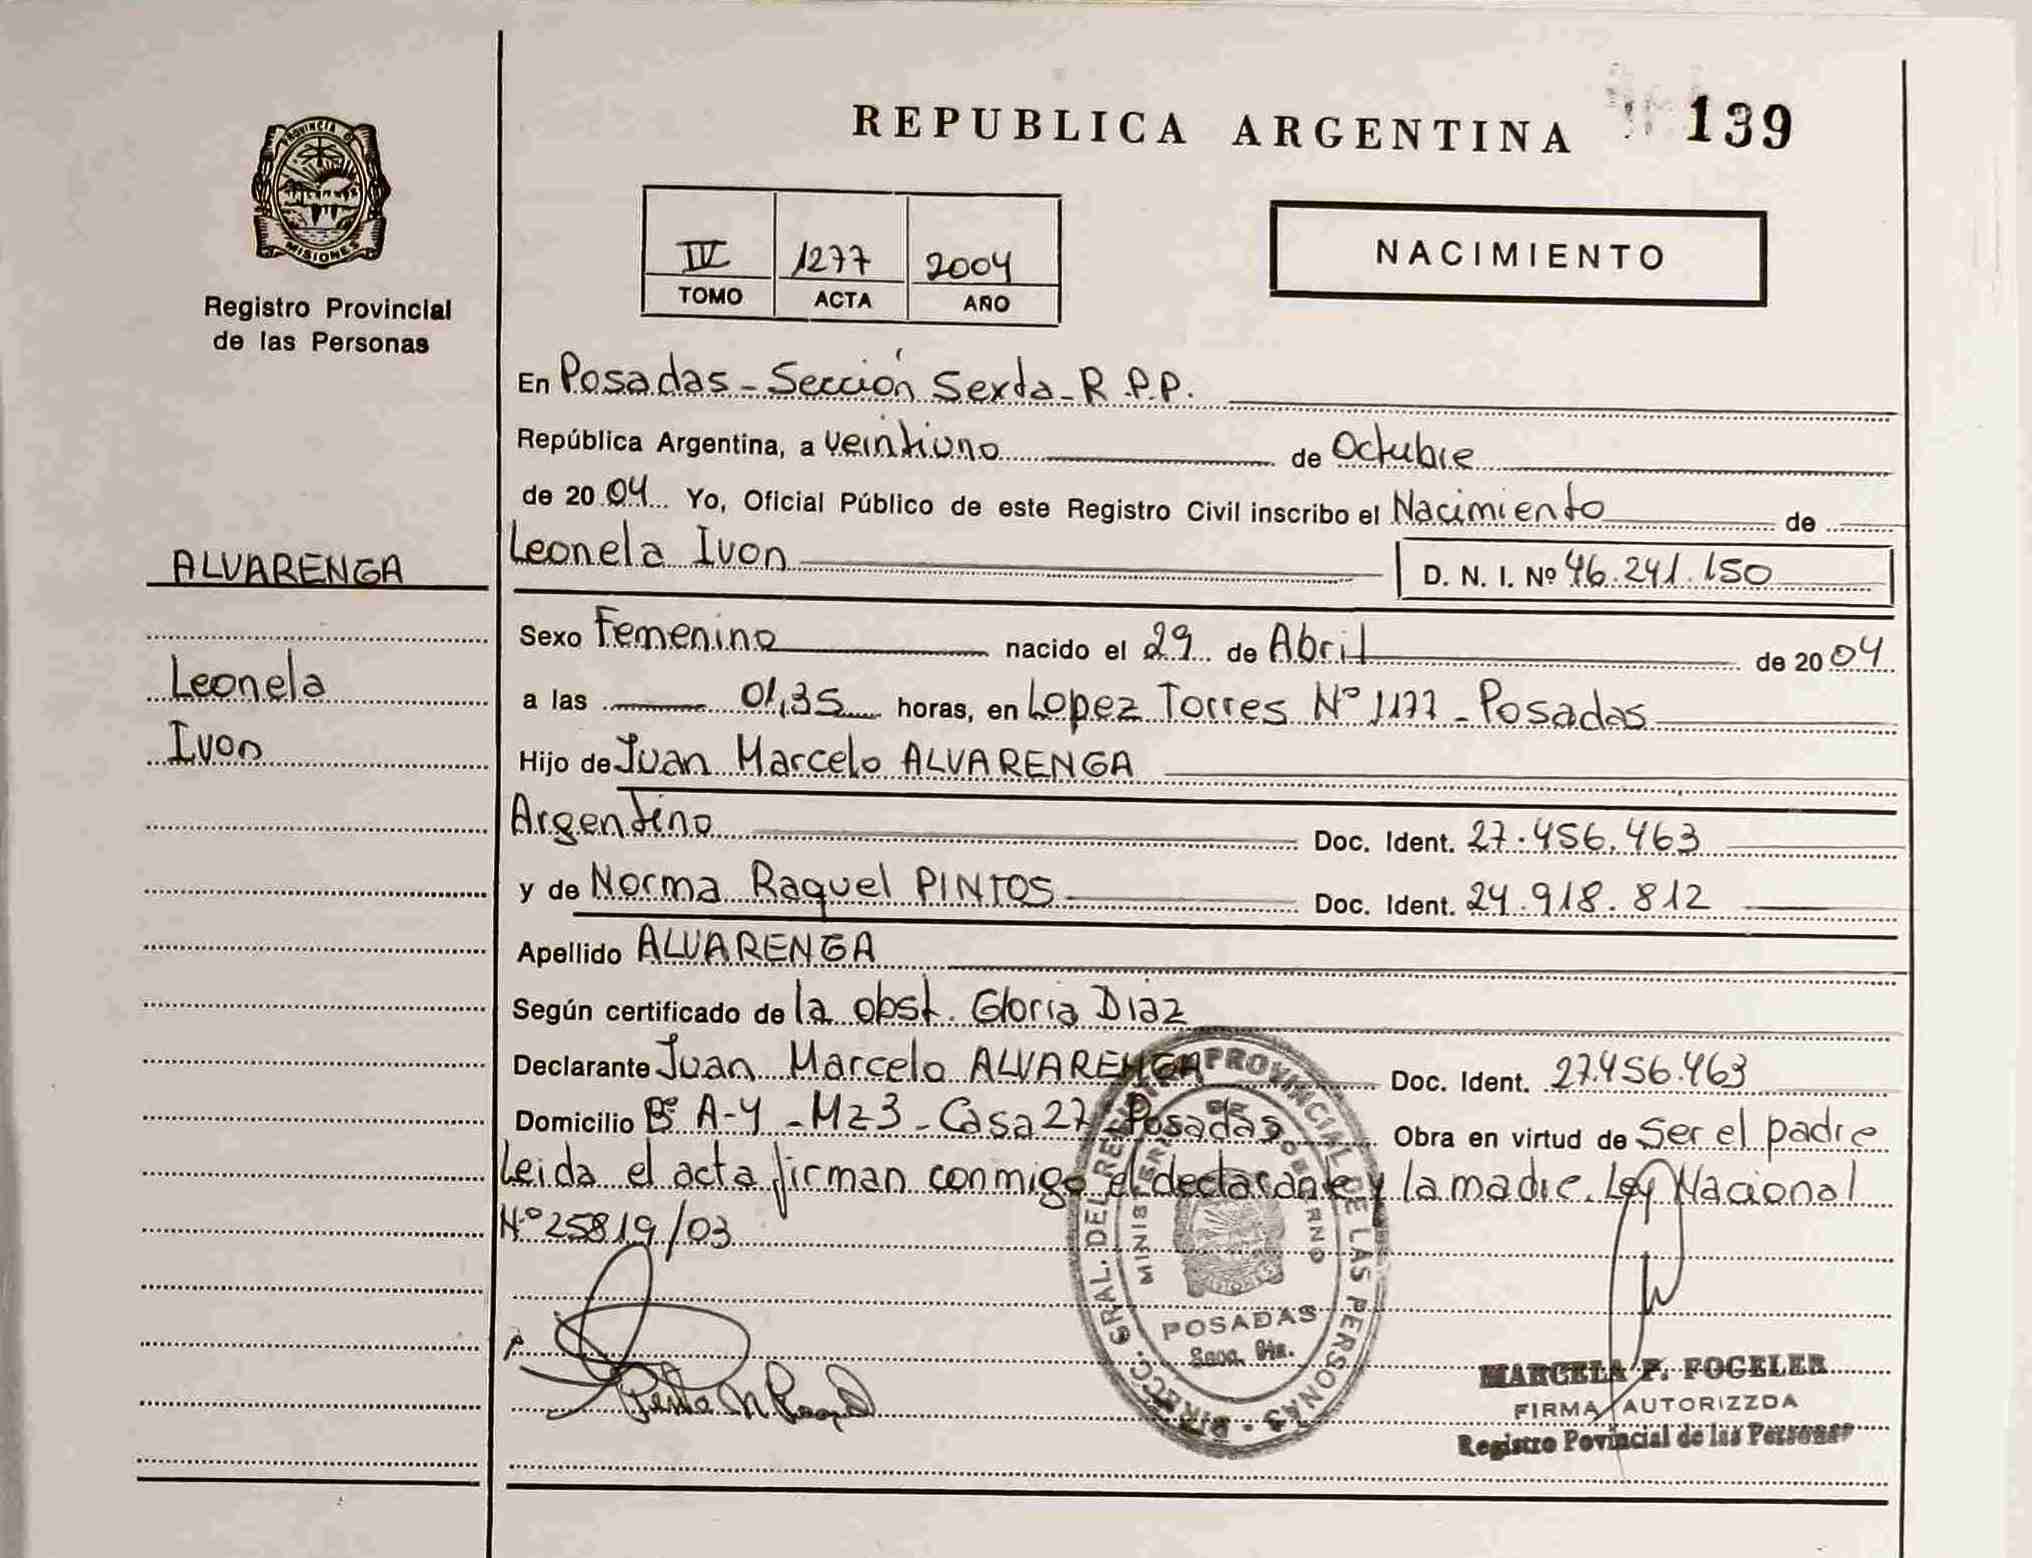 REPUBLICA ARGENTINA 139
PROVINCIA DE
MISIONES
Registro Provincial
de las Personas
IV 1277 2004
TOMO ACTA AÑO
NACIMIENTO
En Posadas - Sección Sexta - R.P.P.
República Argentina, a veintiuno de Octubre
de 2004 Yo, Oficial Público de este Registro Civil inscribo el Nacimiento de
Leonela Ivon D. N. I. Nº 46.241.150
ALVARENGA
Leonela
Ivon
Sexo Femenino nacido el 29 de Abril de 2004
a las 01,35 horas, en Lopez Torres Nº 1177 - Posadas
Hijo de Juan Marcelo ALVARENGA
Argentino Doc. Ident. 27.456.463
y de Norma Raquel PINTOS Doc. Ident. 24.918.812
Apellido ALVARENGA
Según certificado de la obst. Gloria Diaz
Declarante Juan Marcelo ALVARENGA Doc. Ident. 27.456.463
Domicilio Bº A-4 - Mz3 - Casa 27 - Posadas Obra en virtud de Ser el padre
Leida el acta firman conmigo el declarante y la madre. Ley Nacional
Nº 25819/03
DIRECC. GRAL. DEL REGISTRO PROVINCIAL DE LAS PERSONAS
MINISTERIO DE GOBIERNO
MISIONES
POSADAS
MARCELA P. FOGELER
FIRMA AUTORIZZDA
Registro Povincial de las Personas